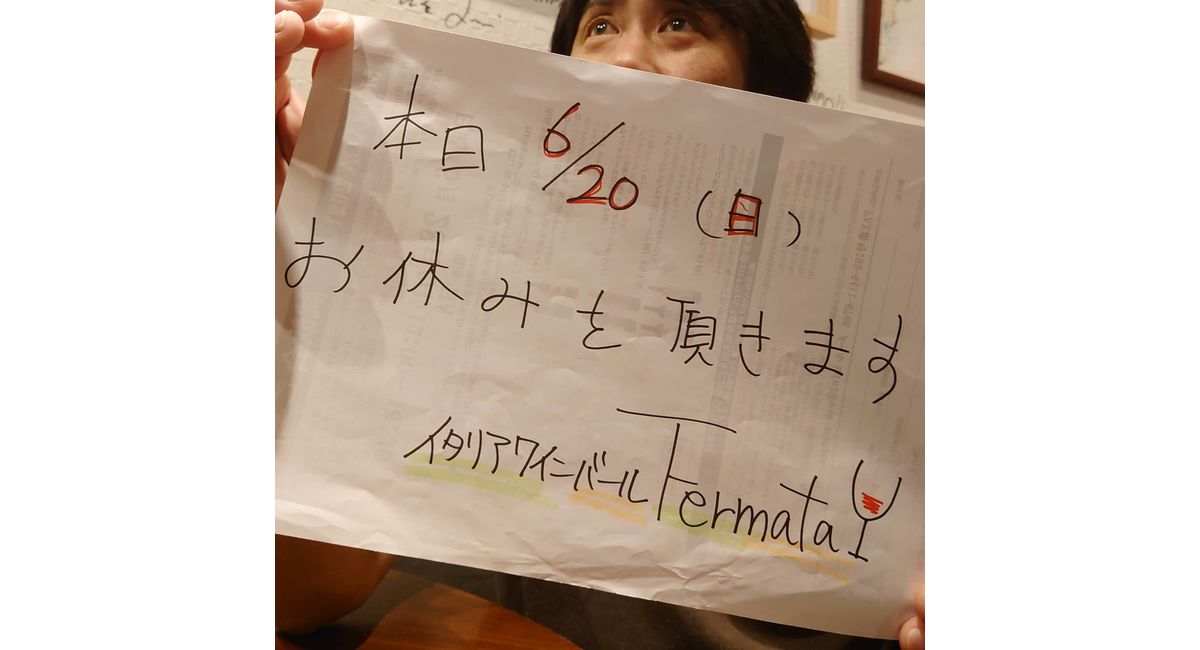 本日 6/20 (日)
お休みを頂きます
イタリアワインバール Fermata